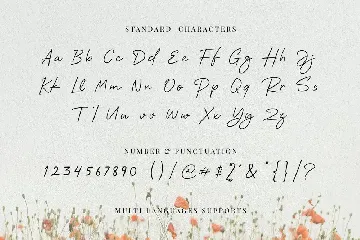 STANDARD CHARACTERS
Aa Bb Cc Dd Ee Ff Gg Hh Jj
Kk Ll Mm Nn Oo Pp Qq Rr Ss
Tt Uu vv Ww Xx Yy Zz
NUMBER & PUNCTUATION
1234567890 ()/@#$%^&*{}/?
MULTI LANGUAGES SUPPORTS